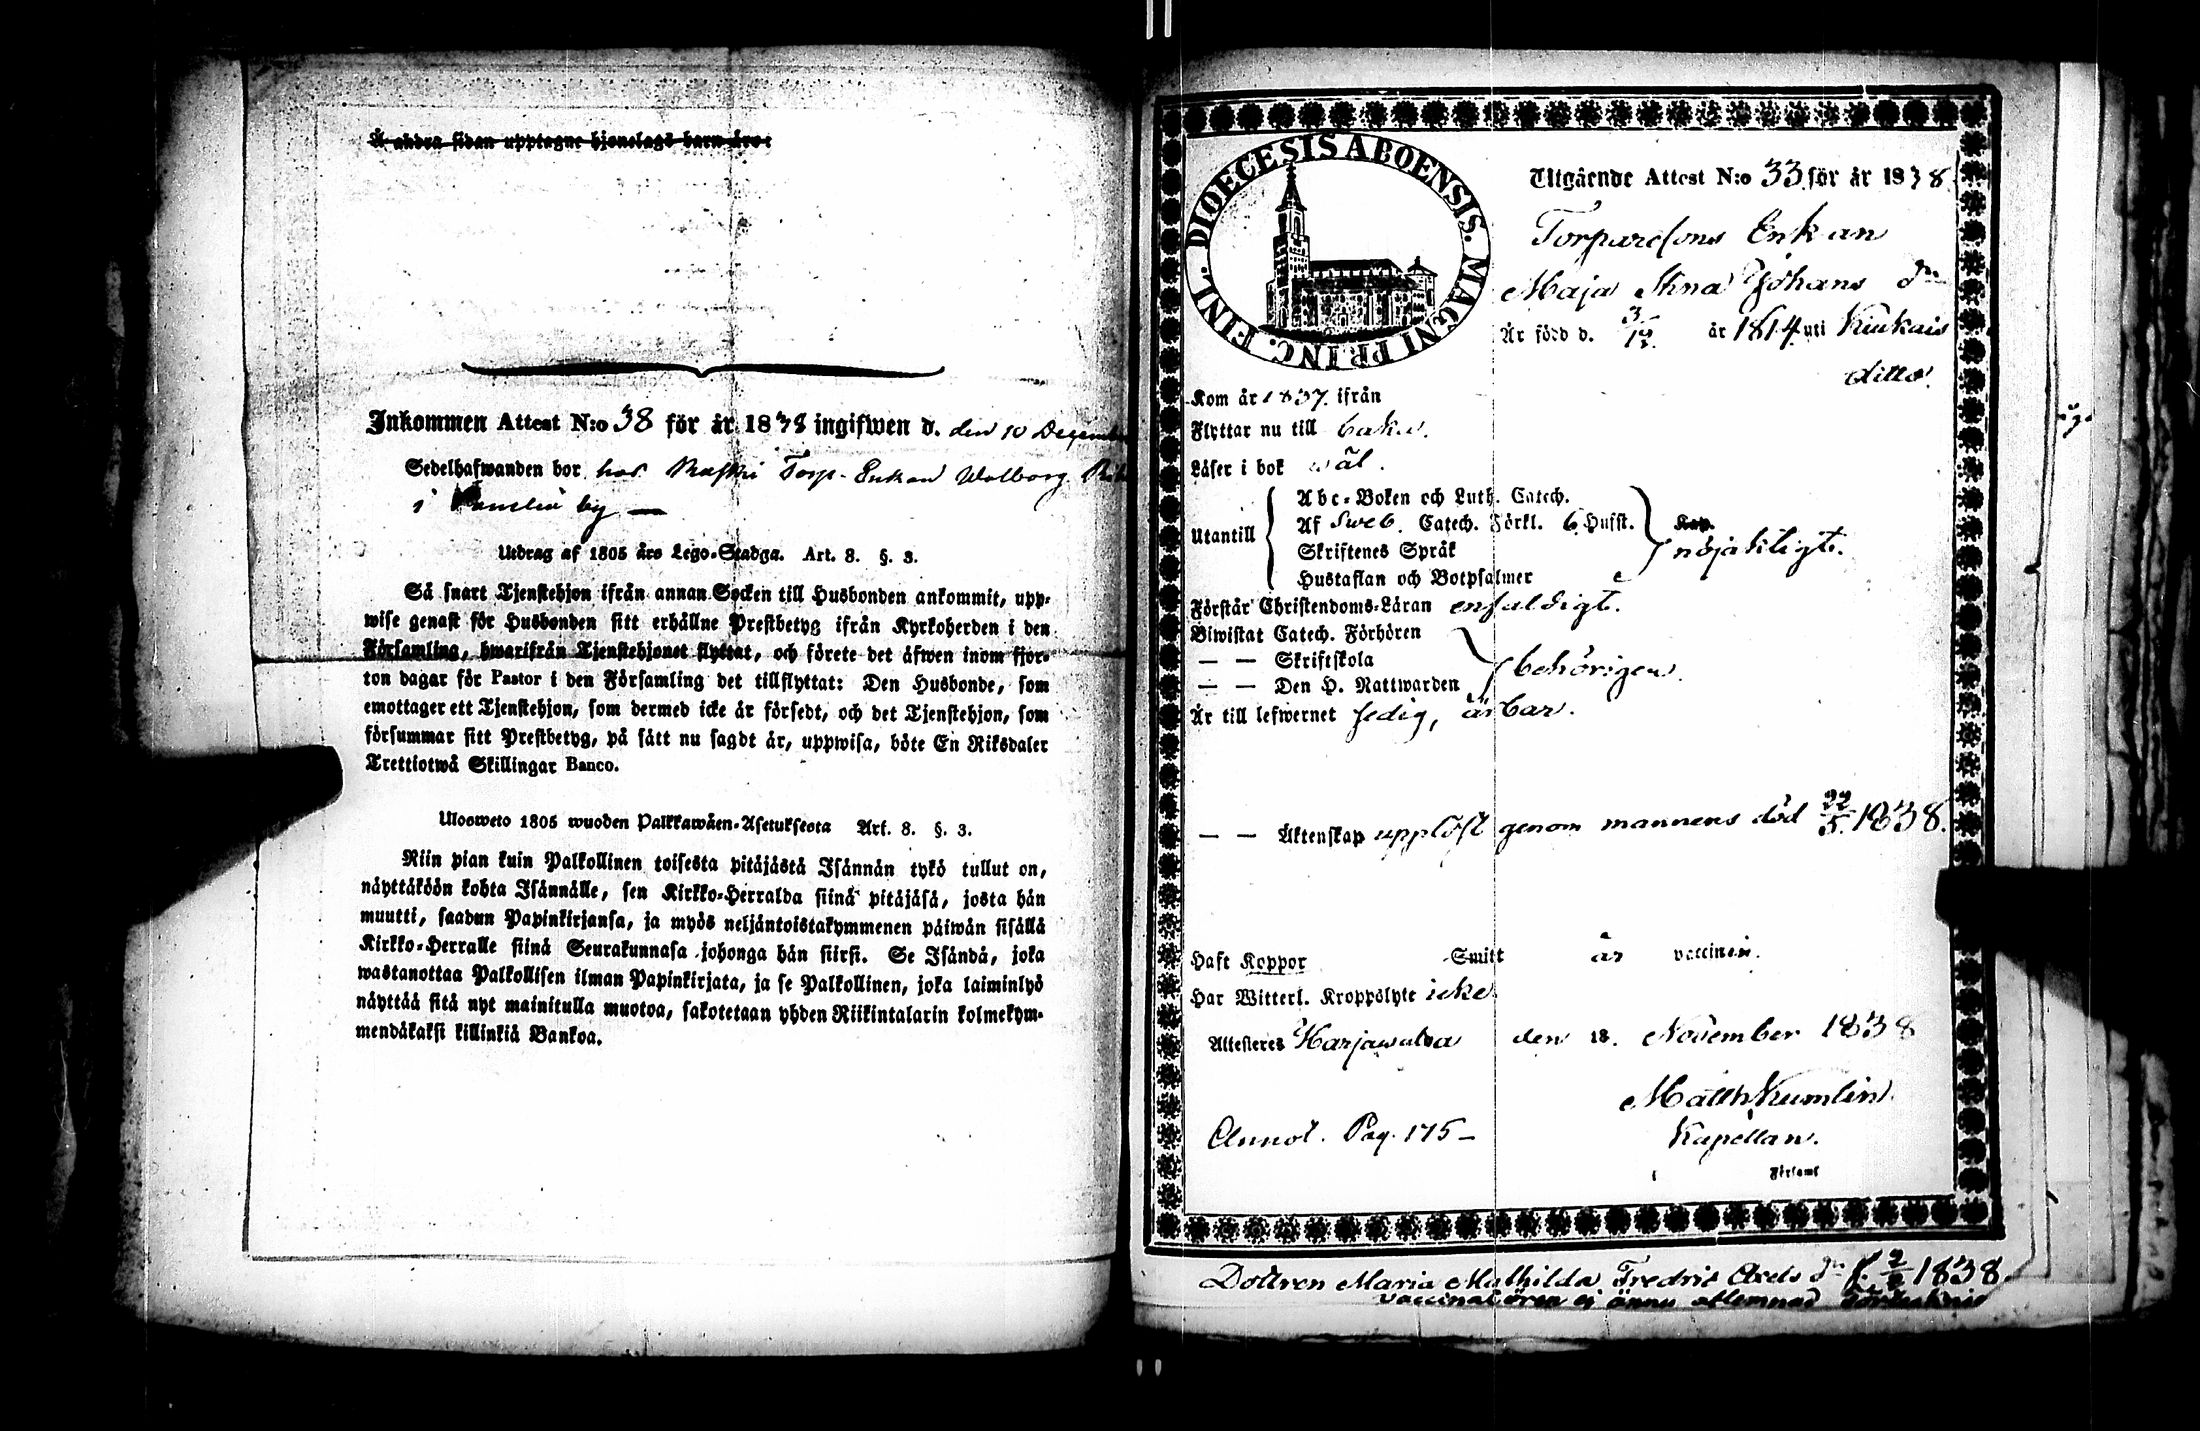 Å andra sidan upptagne hjonelags barn äro:
Inkommen Attest N:o 38 för år 1838 ingifwen d. den 10 December
Sedelhafwanden bor hos Torp. Enkan Walborg
i by —
Utdrag af 1805 års Lego-Stadga. Art. 8. §. 3.
Så snart Tjenstehjon ifrån annan Socken till Husbonden ankommit, upp-
wise genast för Husbonden sitt erhållne Prestbetyg ifrån Kyrkoherden i den
Församling, hwarifrån Tjenstehjonet flyttat, och förete det äfwen inom fjor-
ton dagar för Pastor i den Församling det tillflyttat: Den Husbonde, som
emottager ett Tjenstehjon, som dermed icke är försedt, och det Tjenstehjon, som
försummar sitt Prestbetyg, på sätt nu sagdt är, uppwisa, böte En Riksdaler
Trettiotwå Skillingar Banco.
Ulosweto 1805 wuoden Palkkawäen-Asetuksesta Art. 8. §. 3.
Niin pian kuin Palkollinen toisesta pitäjästä Isännän tykö tullut on,
näyttäköön kohta Isännälle, sen Kirkko-Herralda siinä pitäjäsä, josta hän
muutti, saadun Papinkirjansa, ja myös neljäntoistakymmenen päiwän sisällä
Kirkko-Herralle siinä Seurakunnasa johonga hän siirsi. Se Isändä, joka
wastanottaa Palkollisen ilman Papinkirjata, ja se Palkollinen, joka laiminlyö
näyttää sitä nyt mainitulla muotoa, sakotetaan yhden Riikintalarin kolmekym-
mendäkaksi killinkiä Bankoa.
DIOECESIS ABOENSIS. MAGNI PRINC. FINL.
Utgående Attest N:o 33 för år 1838.
Torparesons Enkan
Maja Stina Johans dr
Är född d. 3/12. år 1814 uti Kiukais
ditto.
Kom år 1837. ifrån
Flyttar nu till baka.
Läser i bok wäl.
Utantill
Abc-Boken och Luth. Catech.
Af Sweb. Catech. Förkl. 6 Hufst. Kap.
Skriftenes Språk nöjaktigt.
Hustaflan och Botpsalmer
Förstår Christendoms-Läran enfaldigt.
Biwistat Catech. Förhören
— — Skriftskola behörigen.
— — Den H. Nattwarden
Är till lefwernet sedig, ärbar.
— — Äktenskap upplöst genom mannens död 22/5 1838.
Haft Koppor Smitt är vaccinen.
Har Witterl. Kroppslyte icke.
Attesteres Harjawalta den 18. November 1838
Matth Kumlin.
Kapellan.
Annot. Pag. 175 –
Församl
Dottren Maria Mathilda Fredric Axels dr f. 1838.
vaccinatören ej ännu aflemnad